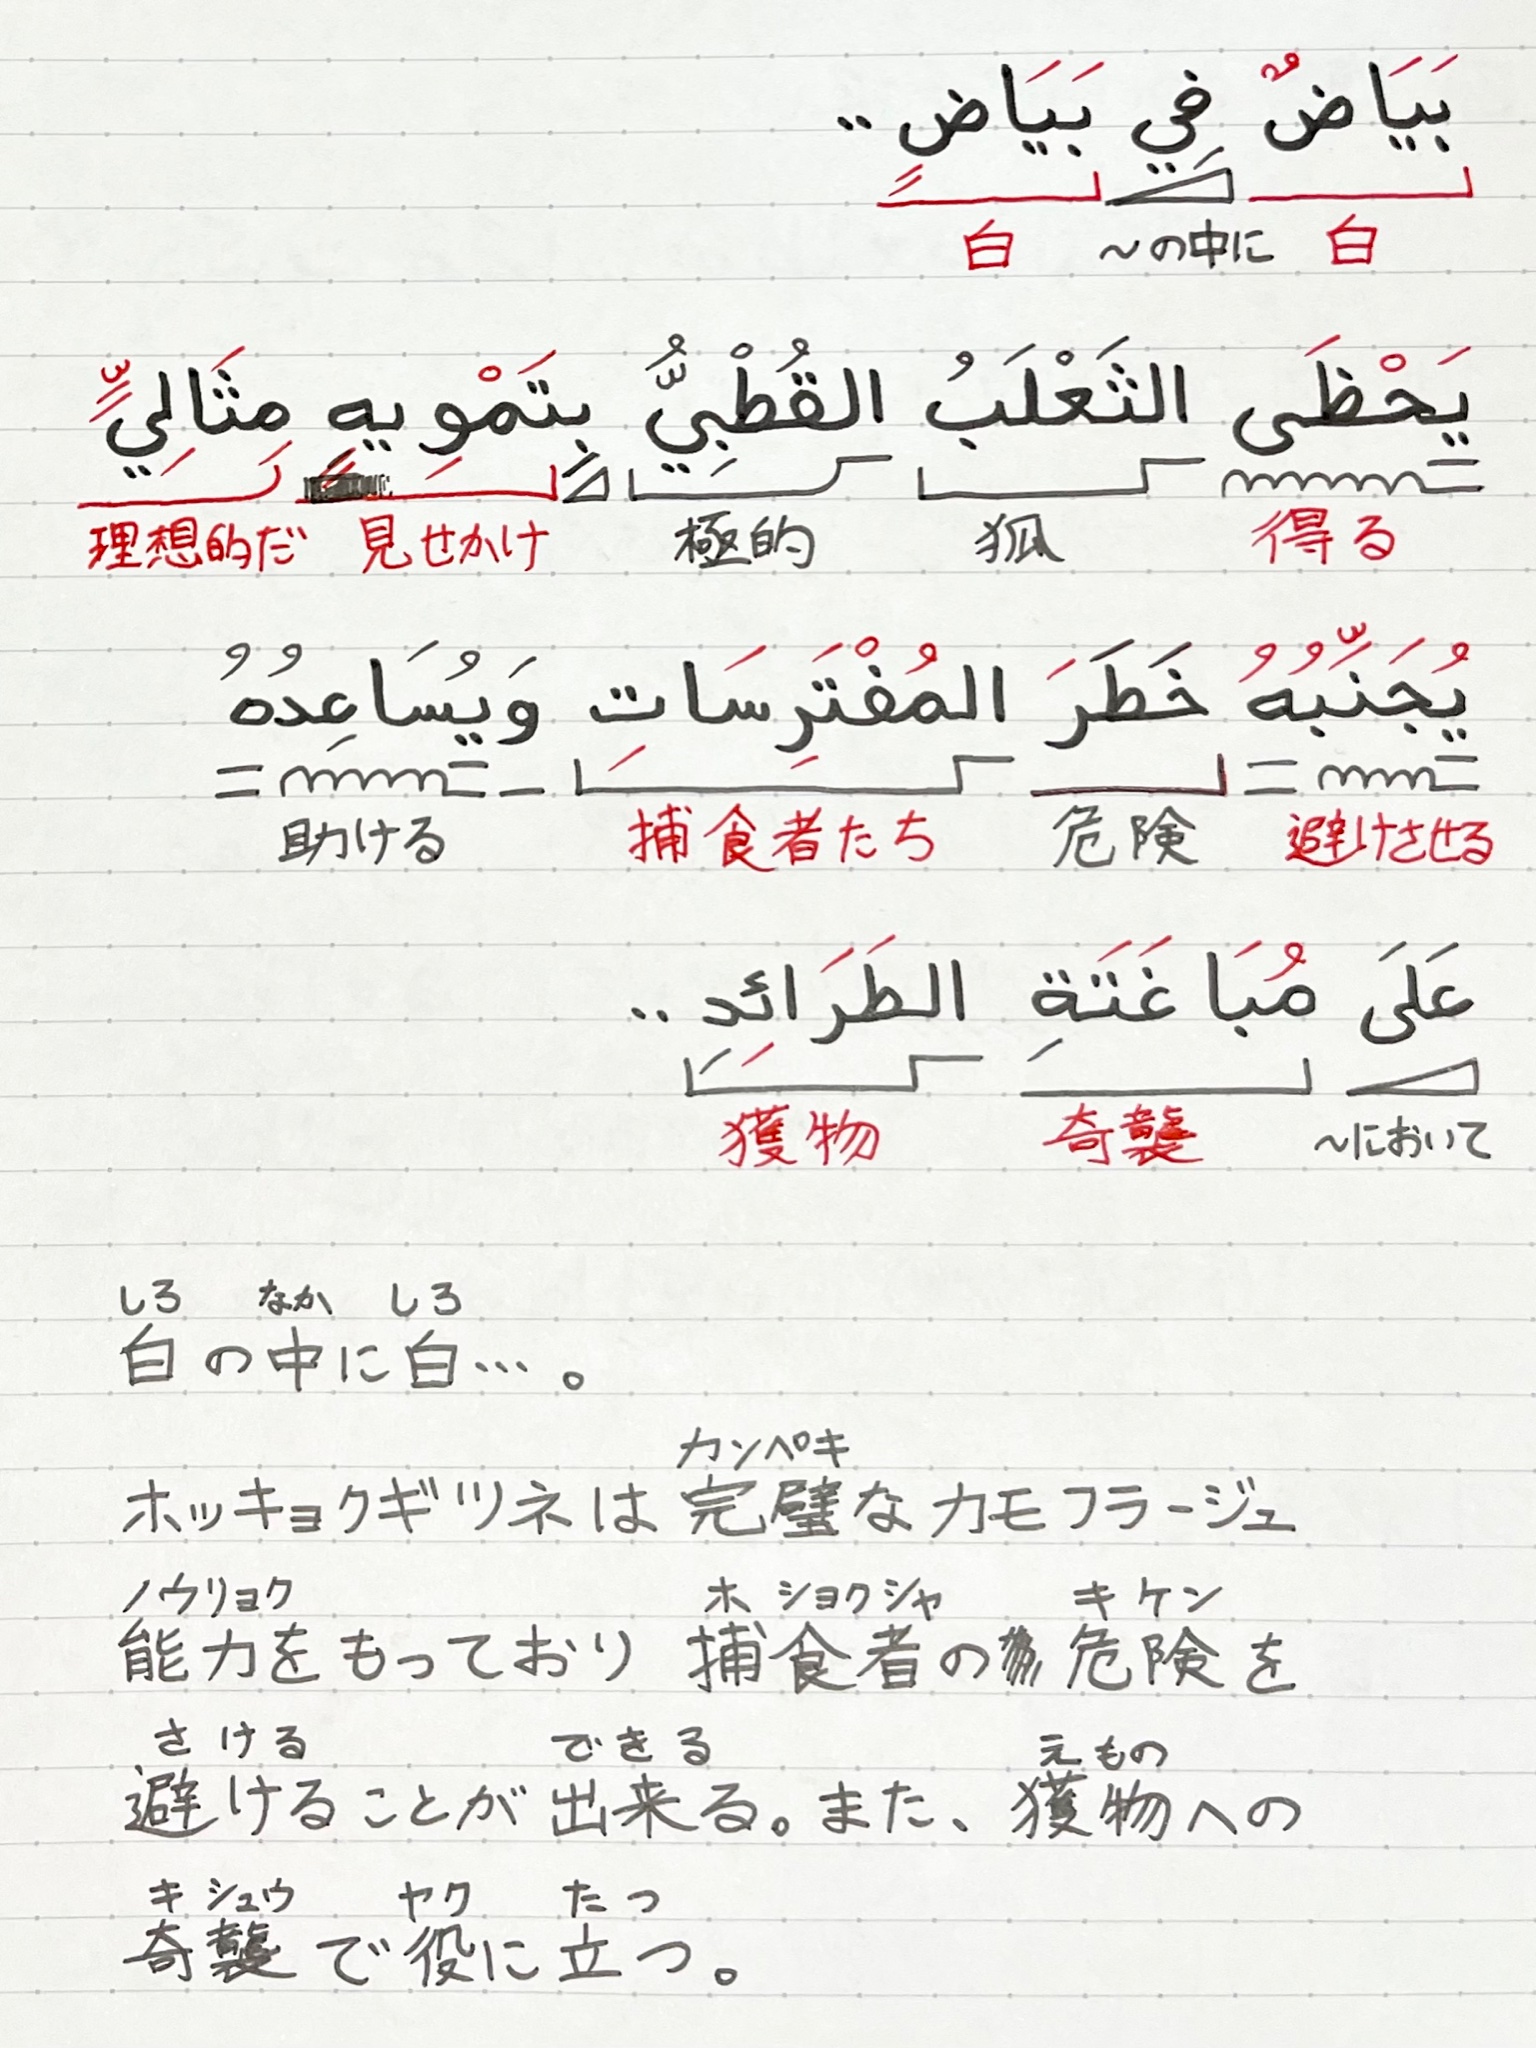 بَيَاضٌ فِي بَيَاضٍ ..
白 ～の中に 白
يَحْظَى الثَعْلَبُ القُطْبِيُّ بِتَمْوِيهٍ مِثَالِيٍّ
理想的だ 見せかけ 極的 狐 得る
يُجَنِّبُهُ خَطَرَ المُفْتَرِسَاتِ وَيُسَاعِدُهُ
助ける 捕食者たち 危険 避けさせる
عَلَى مُبَاغَتَةِ الطَرَائِدِ ..
獲物 奇襲 ～において
しろ なか しろ
白の中に白…。
カンペキ
ホッキョクギツネは完璧なカモフラージュ
ノウリョク ホ ショクシャ キケン
能力をもっており 捕食者の危険を
さける できる えもの
避けることが出来る。また、獲物への
キシュウ ヤク たつ
奇襲で役に立つ。